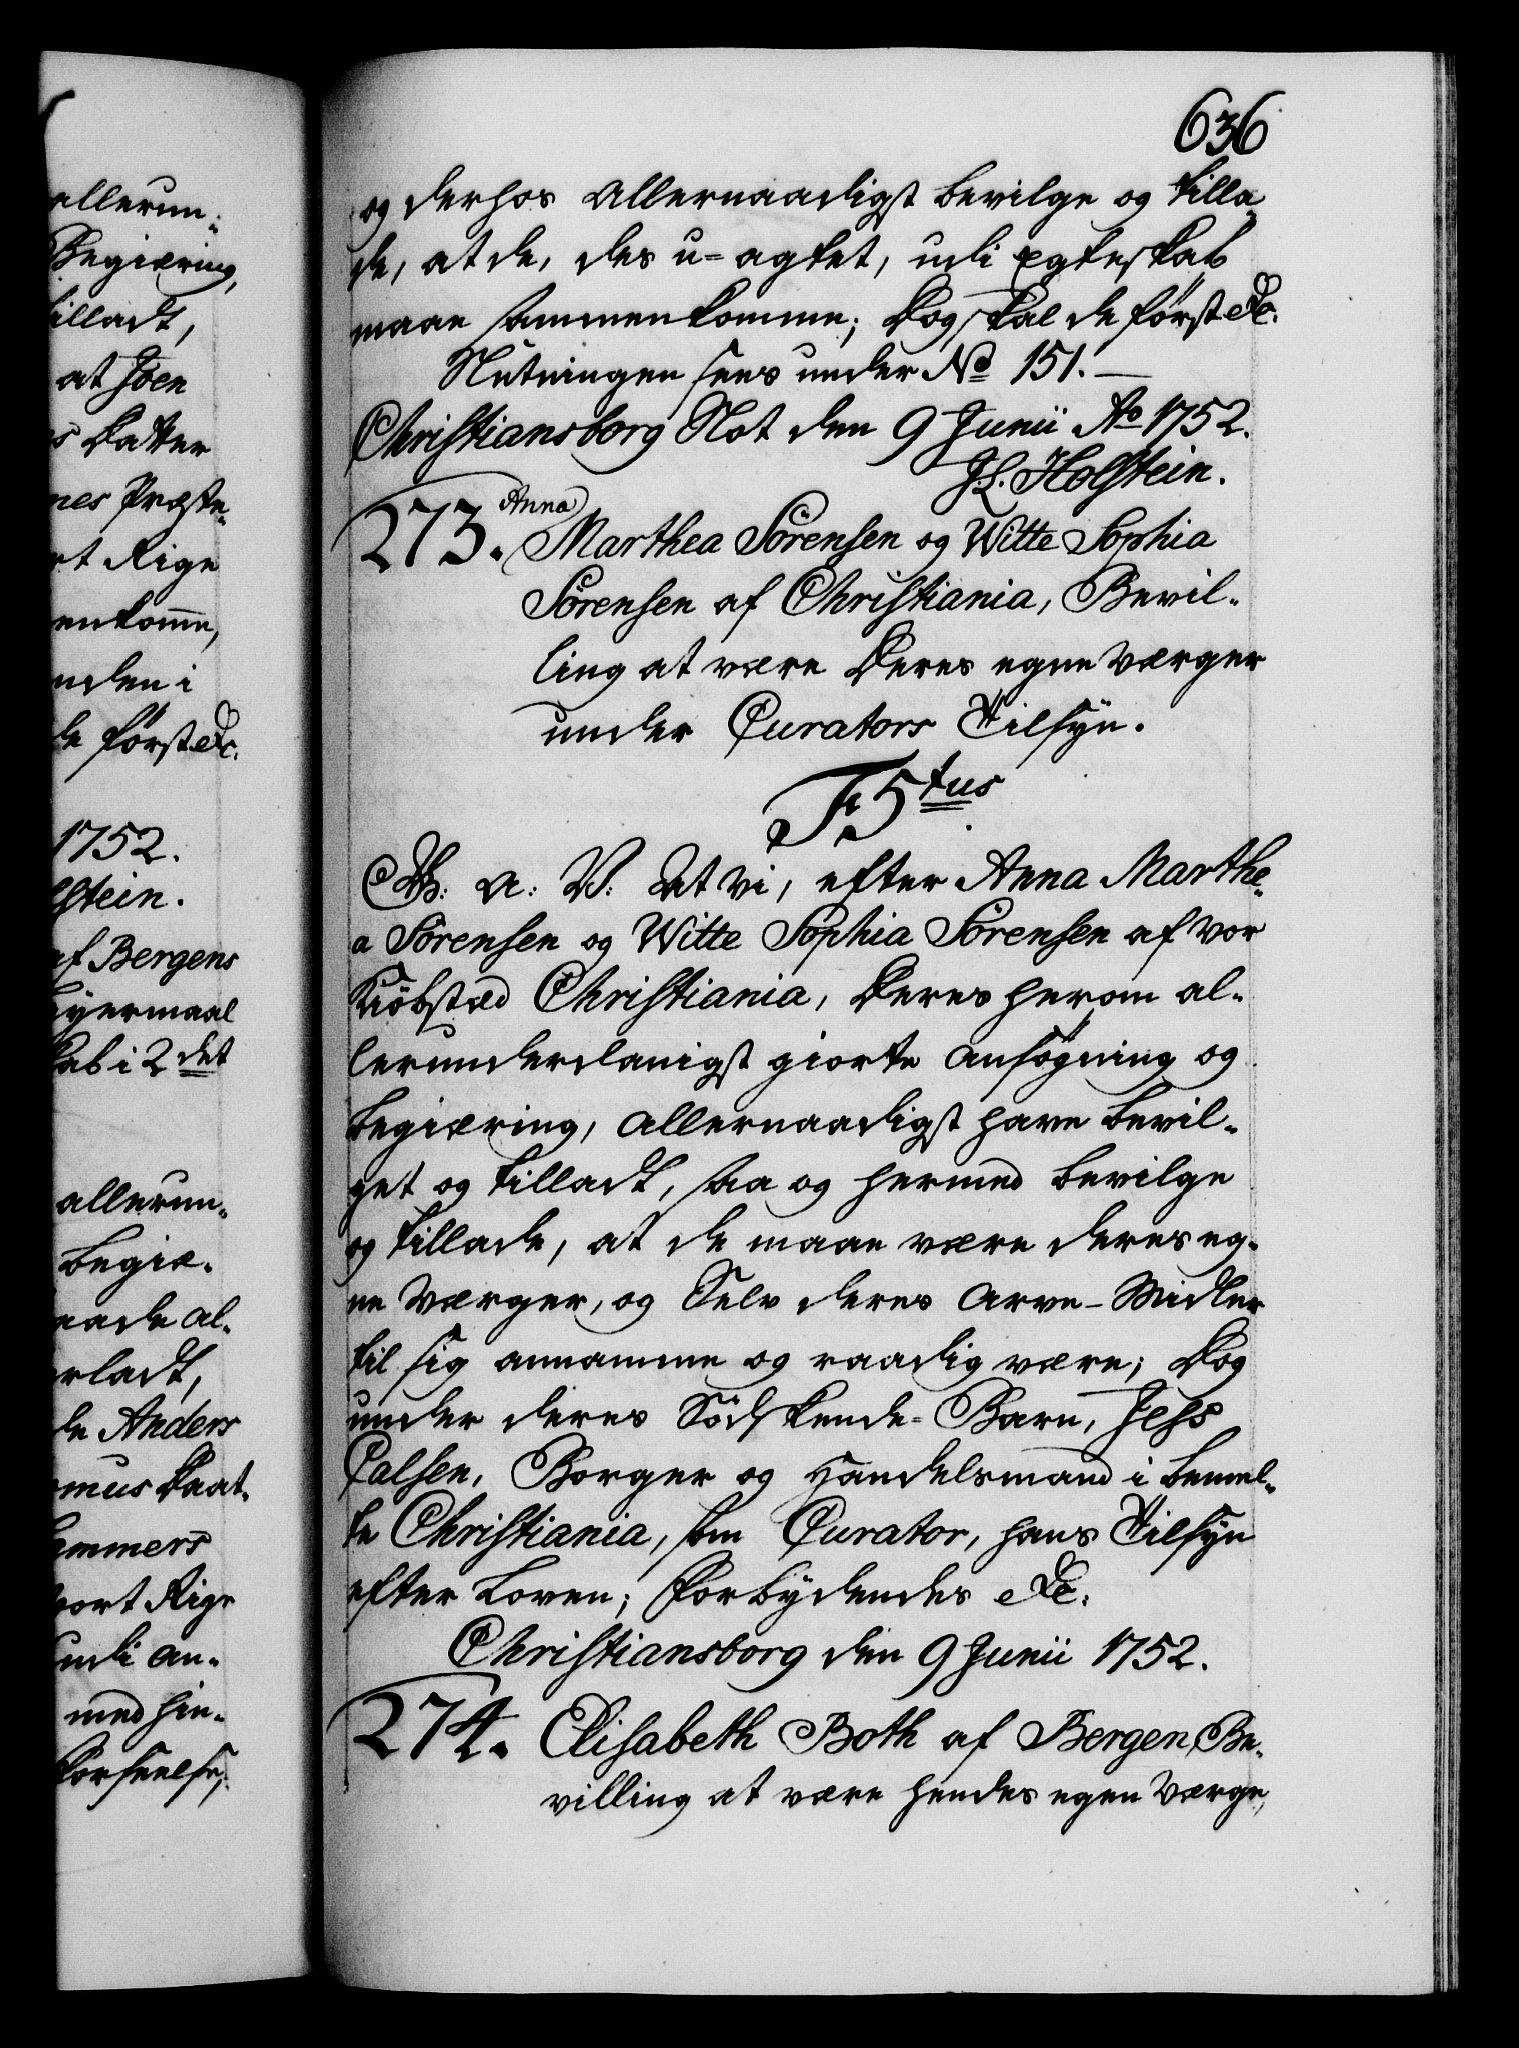 636
og derhos Allernaadigst bevilge og tilla-
de, at de, des u-agtet, udi Egteskab
maae sammenkomme; Dog skal de först &c.
Slutningen sees under No 151.
Christiansborg Slot den 9 Junii Ao 1752.
J L. Holstein.
273. Anna
Marthea Sörensen og Witte Sophia
Sörensen af Christiania, Bevil-
ling at være Deres egne Værger
under Curators Tilsyn.
F. 5tus
G: A: V: At Vi, efter Anna Marthe-
a Sörensen og Witte Sophia Sörensen af vor
Kiöbstæd Christiania, Deres herom al-
lerunderdanigst giorte Ansögning og
Begiæring, Allernaadigst have bevil-
get og tilladt, saa og hermed bevilge
og tillade, at de maae være deres eg-
ne Værger, og Selv deres Arve-Midler
til sig annamme og raadig være; Dog
under deres Södskende-Barn, Jess
Calsen, Borger og Handelsmand i bemel-
te Christiania, som Curator, hans Tilsyn
efter Loven; Forbydendes &c.
Christiansborg den 9 Junii 1752.
274. Elisabeth Both af Bergen, Be-
villing at være hendes egen Værge,
allerun-
Begiæring,
tilladt,
at Joen
Datter
Præste-
Rige
enkomme,
inden i
de först &c.
1752.
lstein.
af Bergens
eyermaal
kab i 2det
allerun-
begiæ-
aade al-
erladt,
de Anders
mus Daat-
ammers
vort Rige
udi an-
med hin-
forseelse;